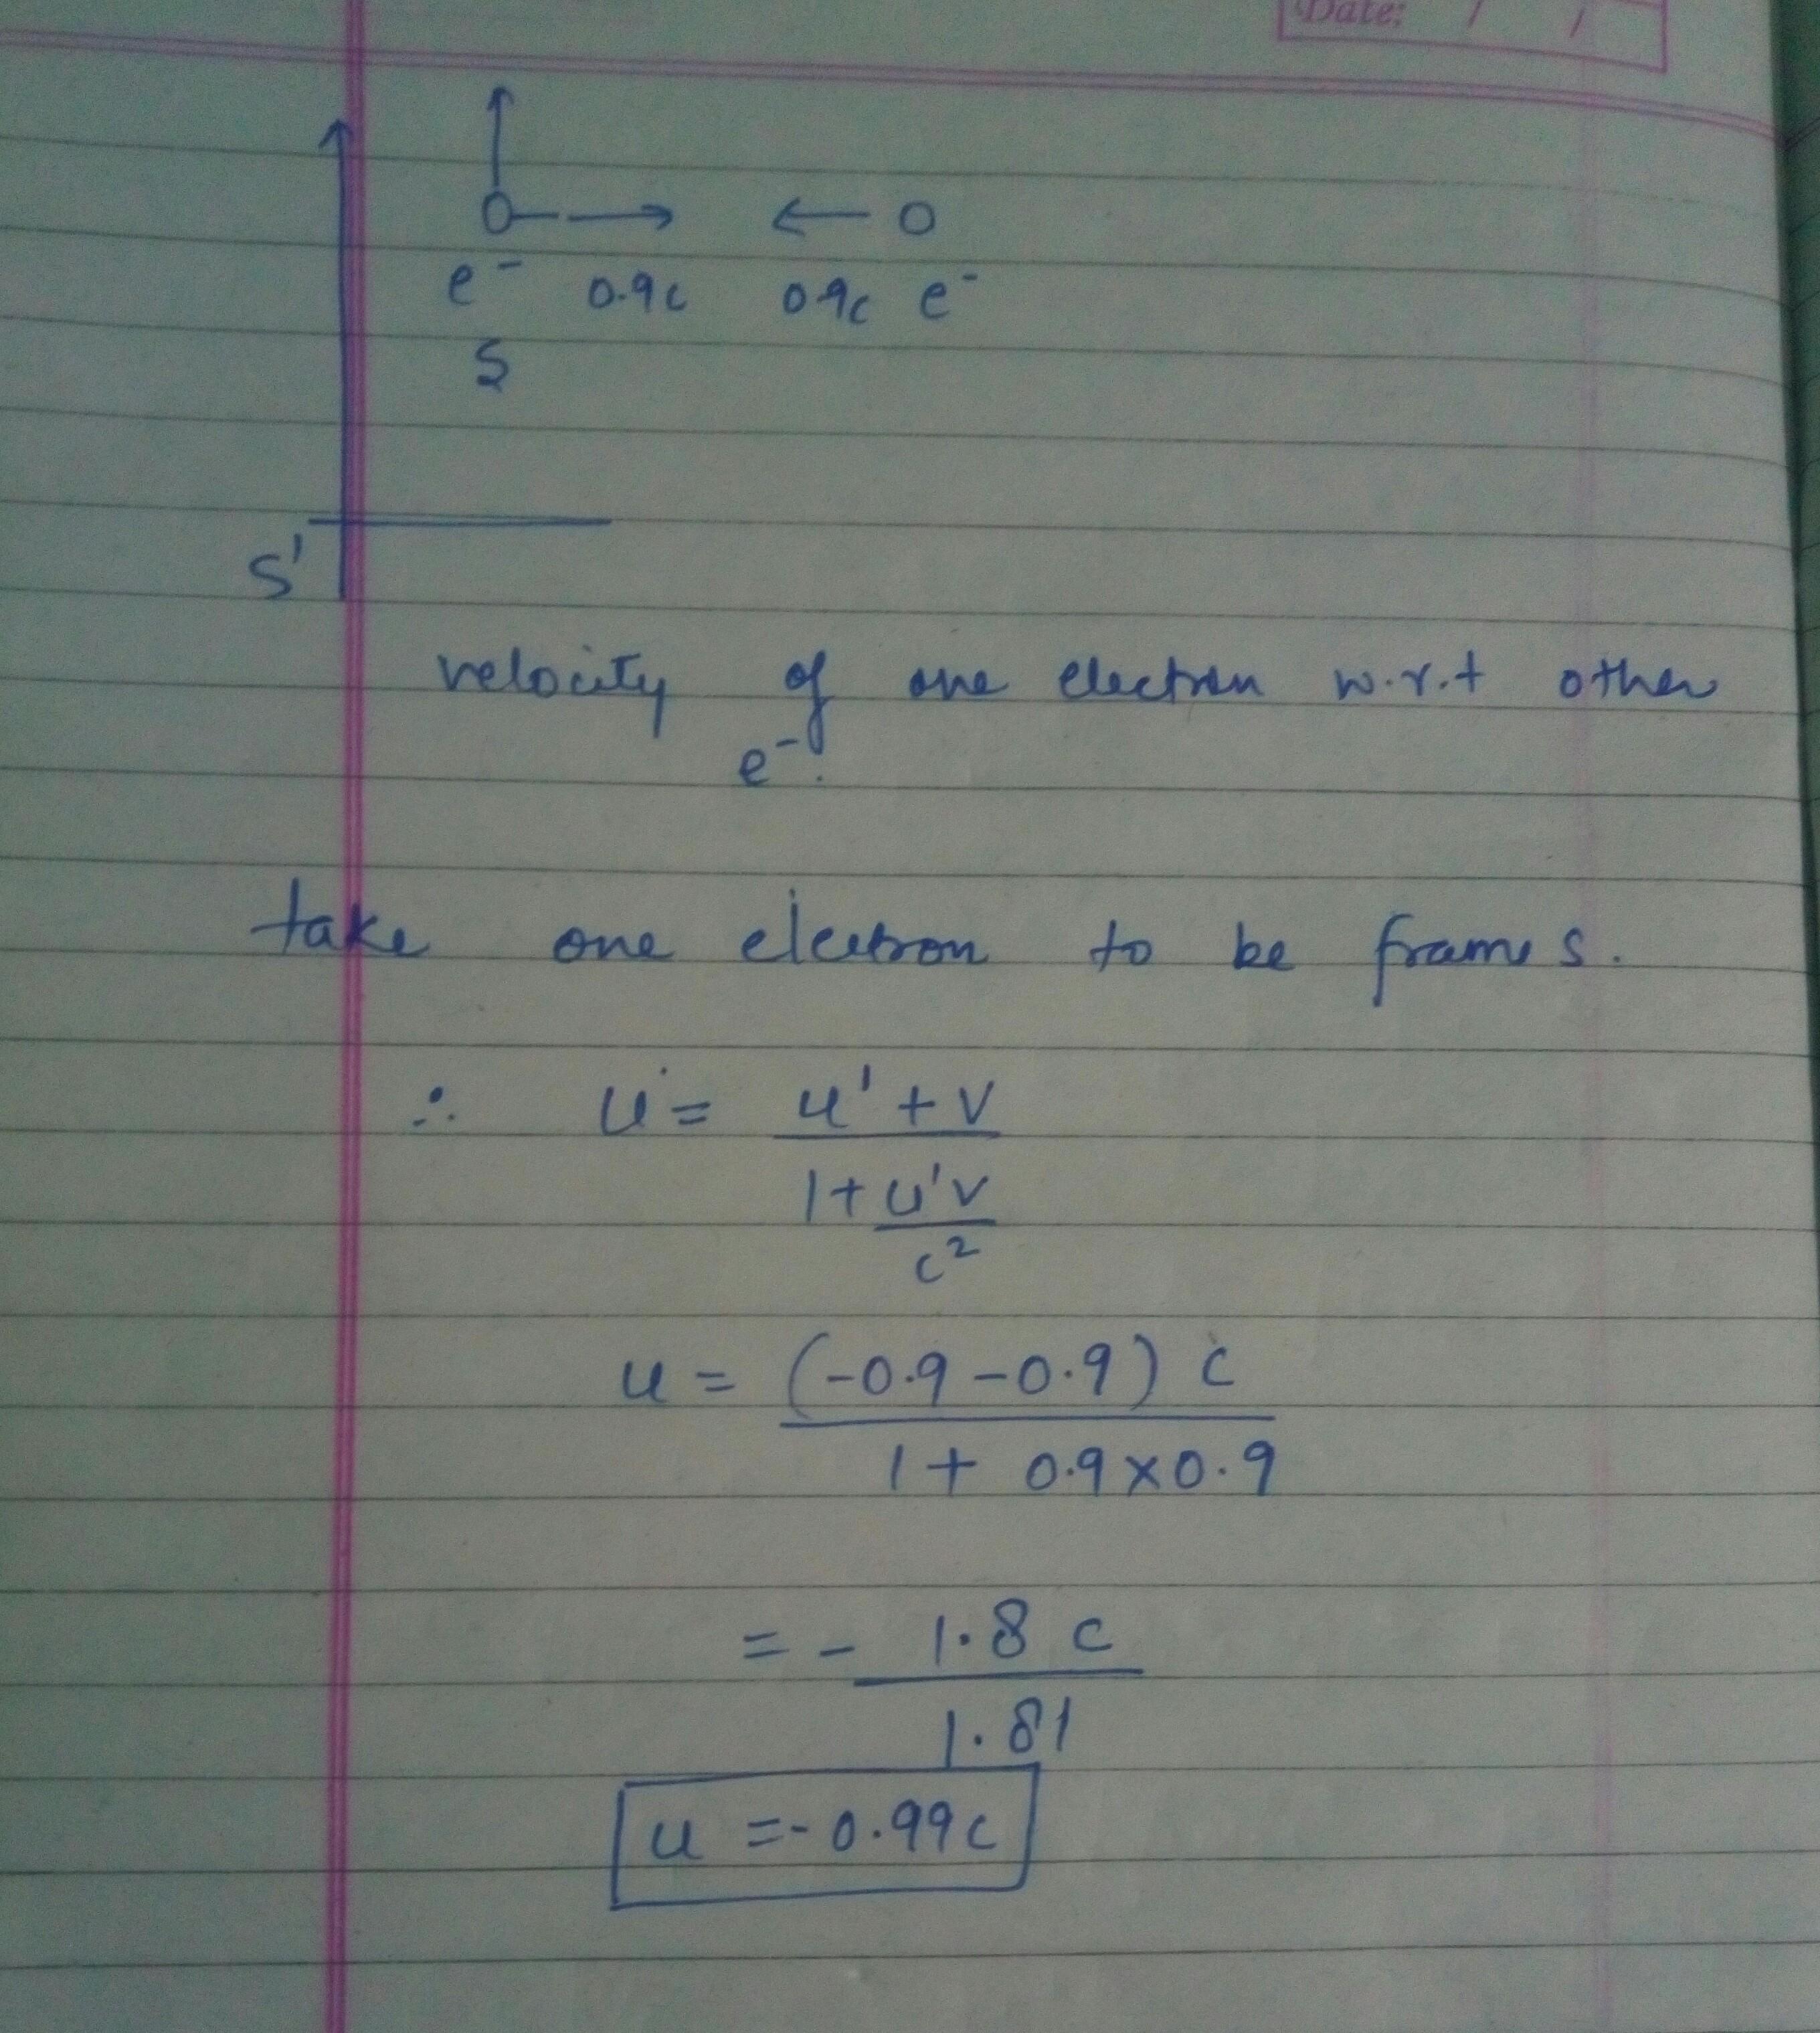 Date: / /
e⁻ 0.9c 0.9c e⁻
S
S'
velocity of one electron w.r.t other
e⁻.
take one electron to be frame S.
∴ u = u' + v
1 + u'v
c²
u = (-0.9 - 0.9) c
1 + 0.9 × 0.9
= - 1.8 c
1.81
u = - 0.99c